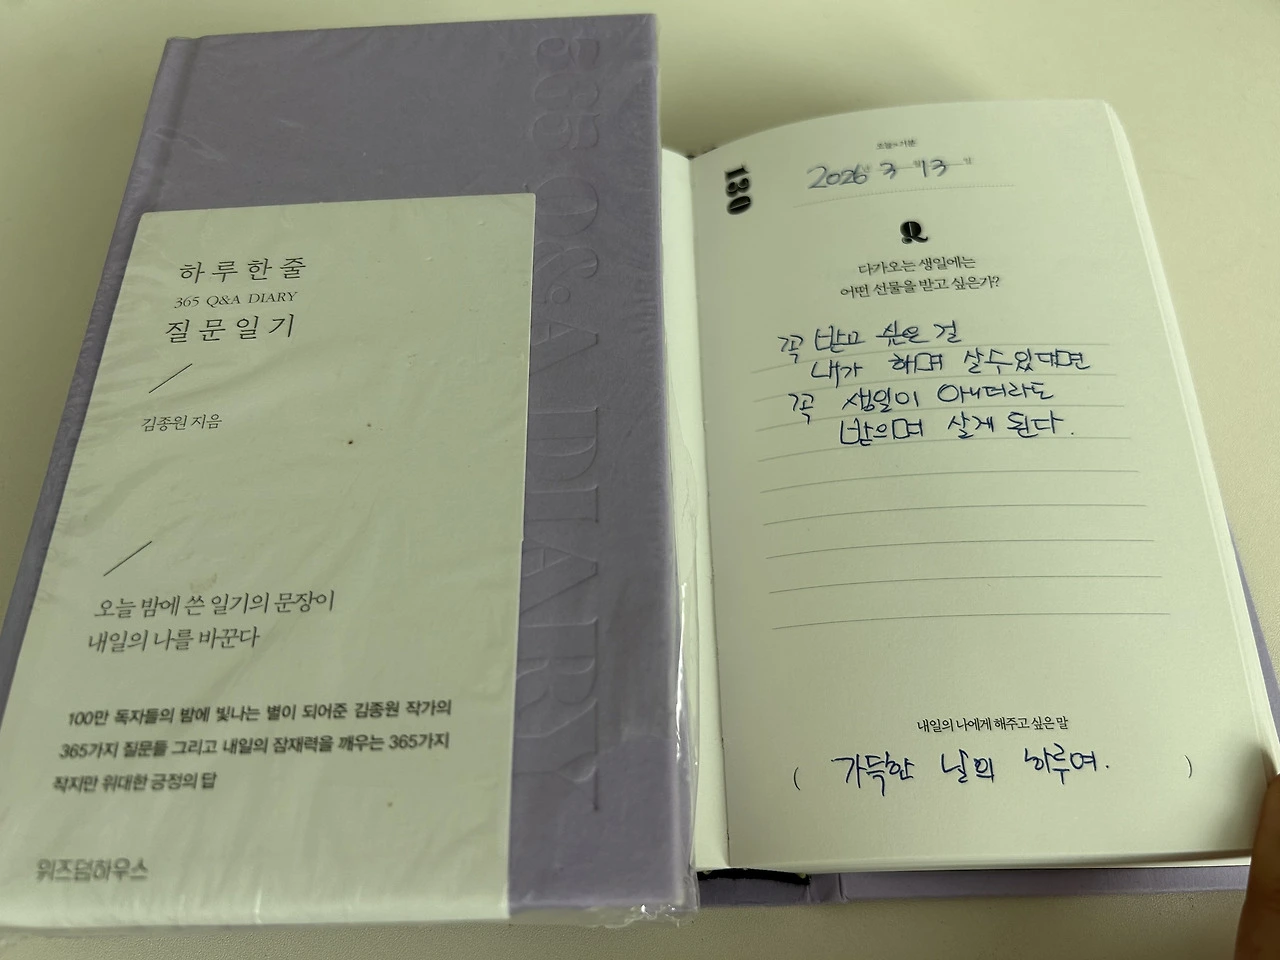 365 Q&A DIARY
하루한줄
365 Q&A DIARY
질문일기
김종원 지음
오늘 밤에 쓴 일기의 문장이
내일의 나를 바꾼다
100만 독자들의 밤에 빛나는 별이 되어준 김종원 작가의
365가지 질문들 그리고 내일의 잠재력을 깨우는 365가지
작지만 위대한 긍정의 답
위즈덤하우스
130
오늘의 기분
2026년 3월 13일
Q
다가오는 생일에는
어떤 선물을 받고 싶은가?
꼭 받고 싶은 걸
내가 하며 살수있다면
꼭 생일이 아니더라도
받으며 살게 된다.
내일의 나에게 해주고 싶은 말
( 가득한 날의 하루여. )